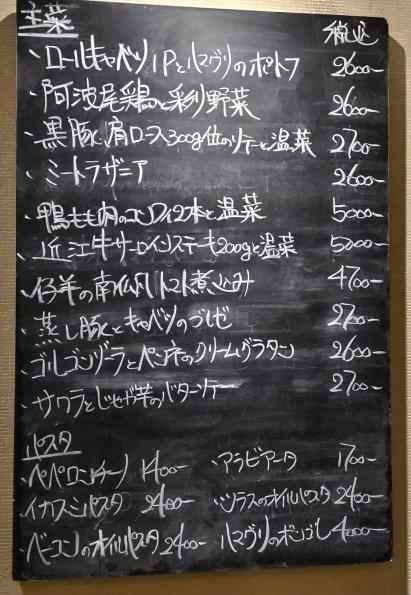 主菜 税込
・ロールキャベツ1Pとハマグリのポトフ 2600-
・阿波尾鶏と彩り野菜 2600-
・黒豚、肩ロース300g位のソテーと温菜 2700-
・ミートラザニア 2600-
・鴨もも肉のコンフィ2本と温菜 5000-
・近江牛サーロインステーキ200gと温菜 5000-
・仔羊の南仏風トマト煮込み 4700-
・蒸し豚とキャベツのブレゼ 2700-
・ゴルゴンゾーラとペンネのクリームグラタン 2600-
・サワラとじゃが芋のバターソテー 2700-
パスタ
・ペペロンチーノ 1400- ・アラビアータ 1700-
・イカスミパスタ 2400- ・シラスのオイルパスタ 2400-
・ベーコンのオイルパスタ 2400- ・ハマグリのボンゴレ 4000-